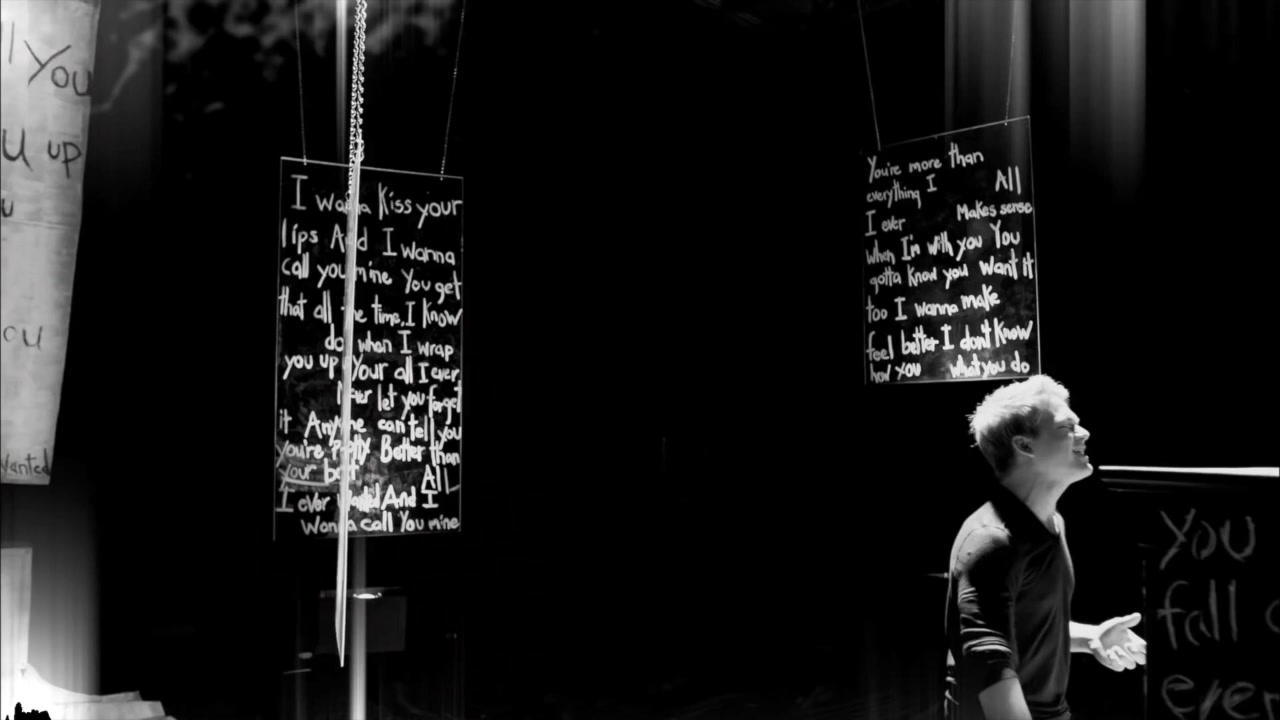 ll You
U up
u
ou
Wanted
I wanna Kiss your
lips And I wanna
call you mine You get
that all the time, I Know
do when I wrap
you up Your all I ever
Never let you forget
it Anyone can tell you
you're Pretty Better than
your best All
I ever Wanted And I
Wanna call You mine
You're more than
everything I All
I ever Makes sense
when I'm with you You
gotta Know you want it
too I wanna make
feel better I don't Know
how you what you do
You
fall
ever